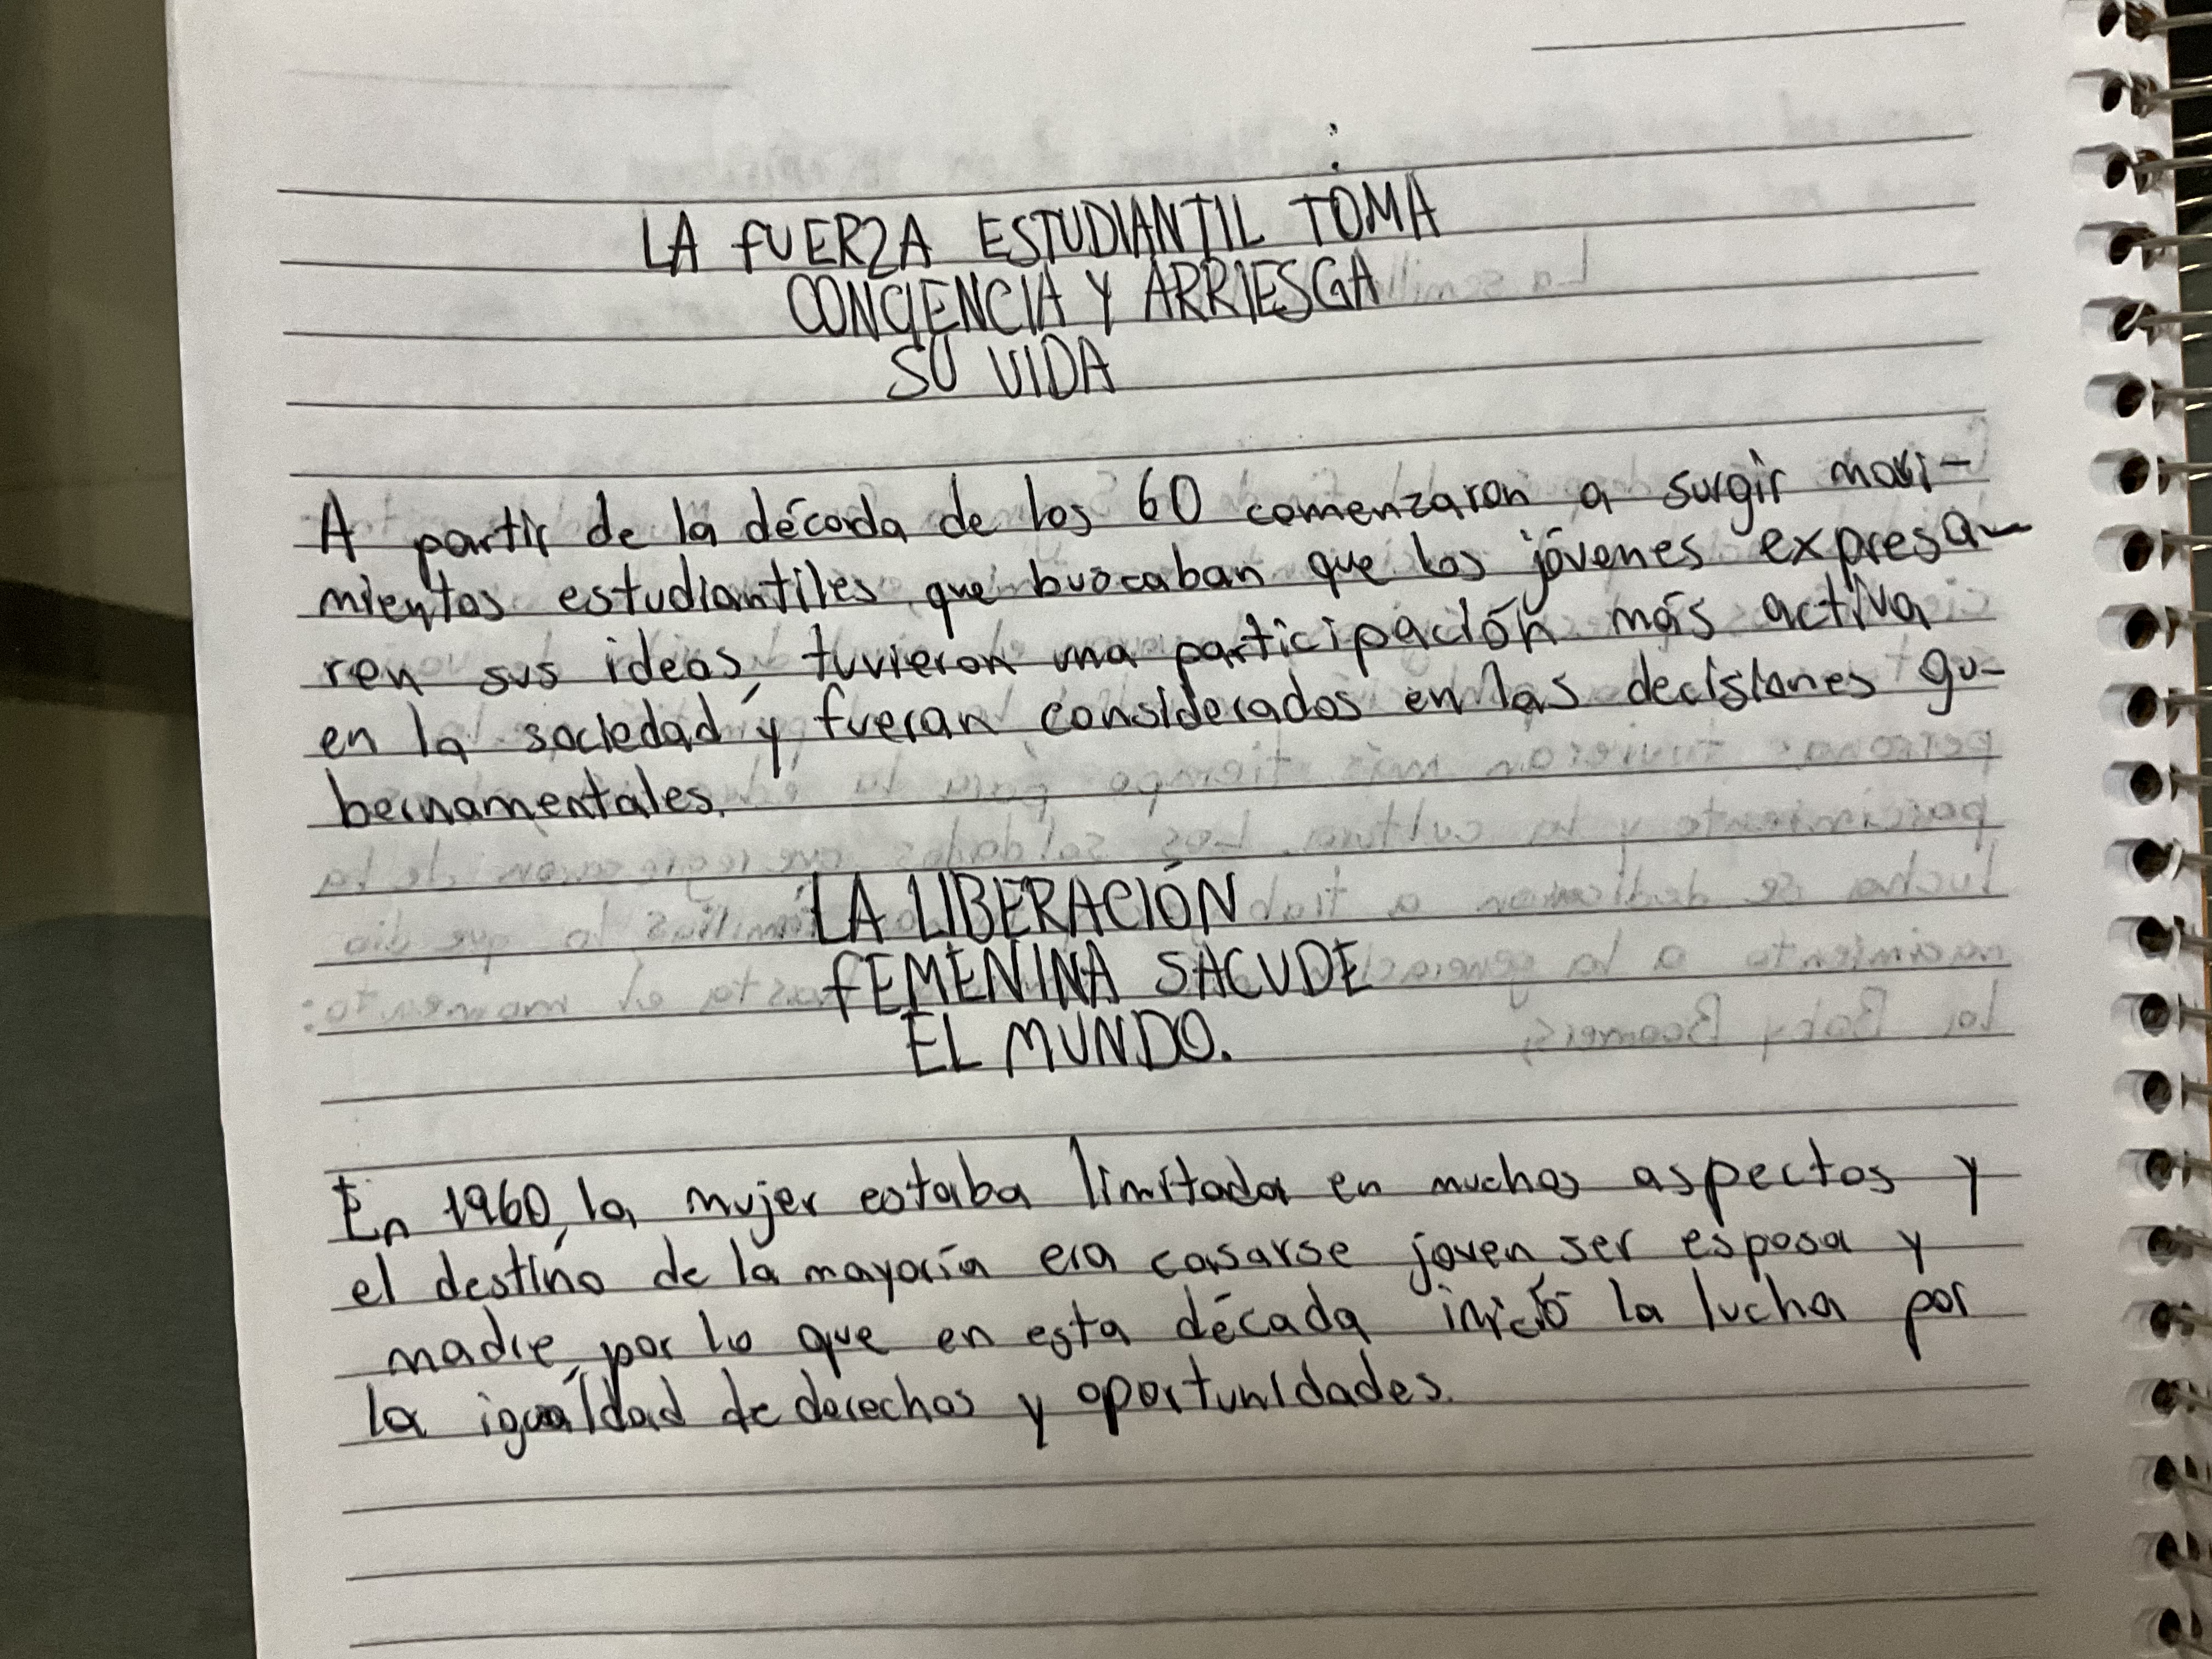 LA FUERZA ESTUDIANTIL TOMA
CONCIENCIA Y ARRIESGA
SU VIDA
A partir de la década de los 60 comenzaron a surgir movi-
mientos estudiantiles que buscaban que los jóvenes expresa-
ren sus ideas, tuvieron una participación más activa
en la sociedad y fueran considerados en las decisiones gu-
bernamentales.
LA LIBERACIÓN
FEMENINA SACUDE
EL MUNDO.
En 1960, la mujer estaba limitada en muchos aspectos y
el destino de la mayoría era casarse joven, ser esposa y
madre, por lo que en esta década inició la lucha por
la igualdad de derechos y oportunidades.